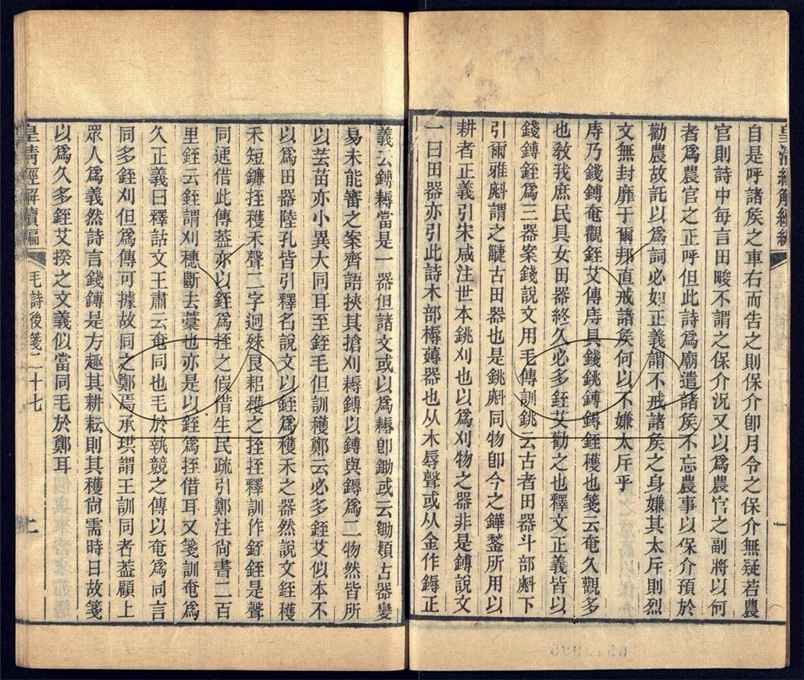 自是呼諸矦之車右而告之則保介卽月令之保介無疑若農
官則詩中每言田畯不謂之保介況又以爲農官之副將以何
者爲農官之正呼但此詩爲廟遣諸矦不忘農事以保介預於
勸農故託以爲詞必如正義謂不戒諸矦之身嫌其太斥則烈
文無封靡于爾邦直戒諸矦何以不嫌太斥乎
庤乃錢鎛奄觀銍艾傳庤具錢銚鎛鎒銍穫也箋云奄久觀多
也敎我庶民具女田器終久必多銍艾勸之也釋文正義皆以
錢鎛銍爲三器案錢說文用毛傳訓銚云古者田器斗部斛下
引爾雅斛謂之疀古田器也是銚斛同物卽今之鏵鍫所用以
耕者正義引宋咸注世本銚刈也以爲刈物之器非是鎛說文
一曰田器亦引此詩木部槈薅器也从木辱聲或从金作鎒正
義云鎛耨當是一器但諸文或以爲耨卽鋤或云鋤類古器變
易未能審之案齊語挾其搶刈耨鎛以鎛與鎒爲二物然皆所
以芸苗亦小異大同耳至銍毛但訓穫鄭云必多銍艾似本不
以爲田器陸孔皆引釋名說文以銍爲穫禾之器然說文銍穫
禾短鎌挃穫禾聲二字迥殊良耜穫之挃挃釋訓作銍銍是聲
同遞借此傳葢亦以銍爲挃之假借生民疏引鄭注尙書二百
里銍云銍謂刈穗斷去藁也亦是以銍爲挃借耳又箋訓奄爲
久正義曰釋詁文王肅云奄同也毛於執競之傳以奄爲同言
同多銍刈但爲傳可據故同之鄭焉承珙謂王訓同者葢顧上
眾人爲義然詩言錢鎛是方趣其耕耘則其穫尙需時日故箋
以爲久多銍艾揆之文義似當同毛於鄭耳
皇淸經解續編
毛詩後箋二十七